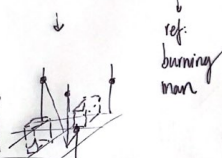 ref:
burning
man